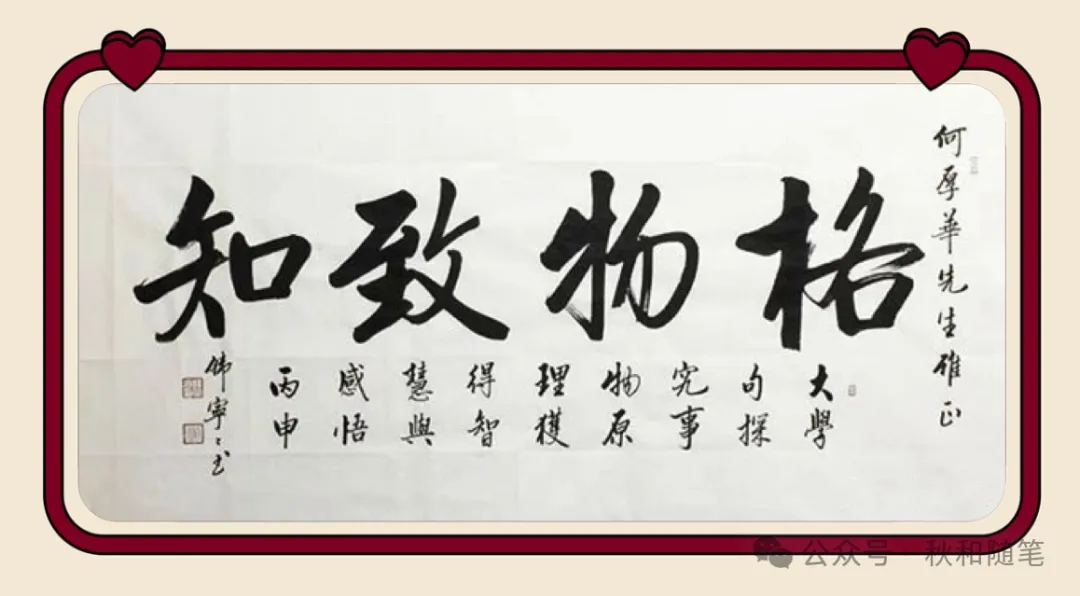 何厚華先生雅正
格物致知
大學
句探
究事
物原
理獲
得智
慧與
感悟
丙申
寧
公众号 · 秋和随笔